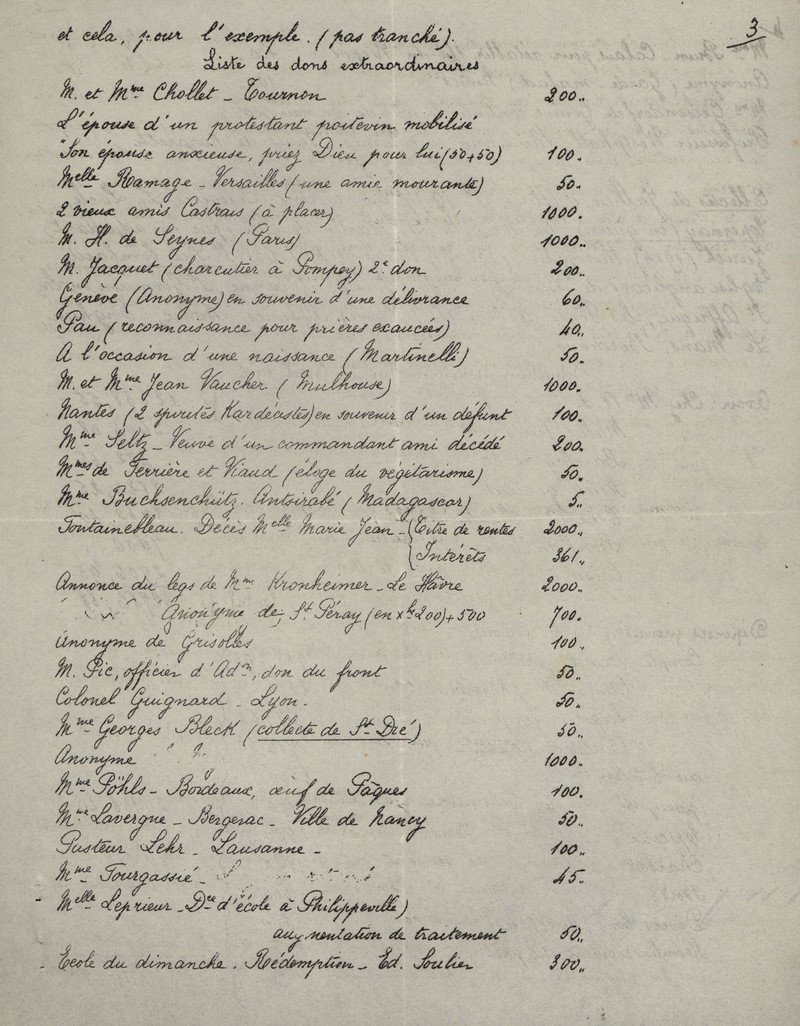 3
et cela, pour l'exemple. (pas tranché).
Liste des dons extraordinaires
M. et Mme Chollet - Tournon 200..
L'épouse d'un protestant poitevin mobilisé
"Son épouse anxieuse, priez Dieu pour lui (50+50) 100.
Melle Ramage - Versailles (une amie mourante) 50.
2 vieux amis Castrais (à placer) 1000.
M. H. de Seynes (Paris) 1000..
M. Jacquet (charcutier à Pompey) 2e don 200..
Genève (Anonyme) en souvenir d'une délivrance 60..
Pau (reconnaissance pour prières exaucées) 40..
A l'occasion d'une naissance (Martinelli) 50.
M. et Mme Jean Vaucher (Mulhouse) 1000..
Nantes (2 spirites Kardécistes) en souvenir d'un défunt 100.
Mme Seltz - Veuve d'un commandant ami décédé 200.
Mmes de Ferrière et Viaud (éloge du végétarisme) 50.
Mme Buchsenchütz. Antsirabé (Madagascar) 5..
Fontainebleau. Décès Melle Marie Jean - { Titre de rentes 2000..
{ Intérêts 361..
Annonce du legs de Mme Kronheimer - Le Hâvre 2000..
Anonyme de St Péray (en xbre 200) + 500 700.
Anonyme de Grisolles 100.
M. Pic, officier d'Adon, don du front 50..
Colonel Guignard - Lyon - 50..
Mme Georges Bleck (collecte de St Dié) 50..
Anonyme " " 1000.
Mme Pöhls - Bordeaux, œuf de Pâques 100.
Mme Lavergne - Bergerac - Ville de Nancy 50..
Pasteur Lehr - Lausanne - 100..
Mme Fourgassié - 45..
- Melle Leprieur - Dce d'école à Philippeville)
augmentation de traitement 50..
- Ecole du dimanche. Rédemption - Ed. Soulier 300..